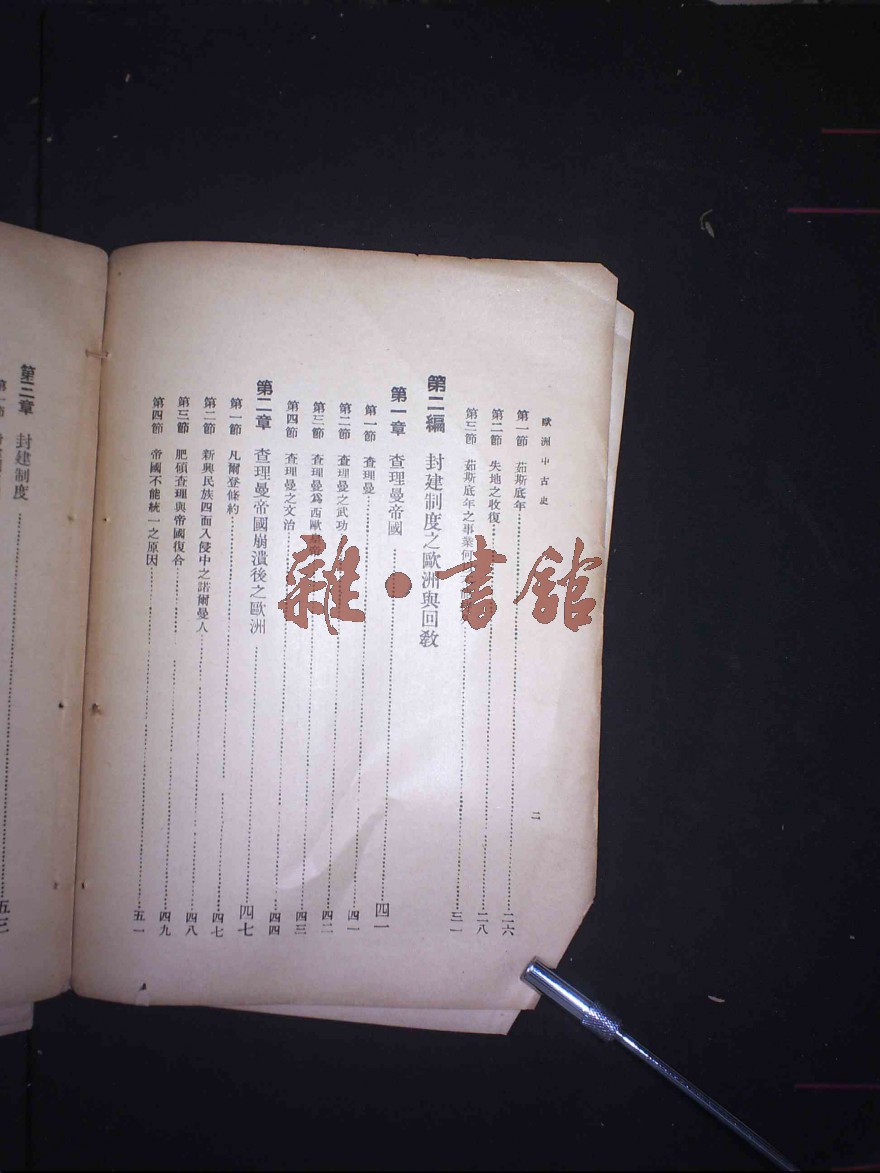 歐洲中古史
二
第一節 茹斯底年……二六
第二節 失地之收復……二八
第三節 茹斯底年之事業何……三一
第二編 封建制度之歐洲與回教
第一章 查理曼帝國……四一
第一節 查理曼……四一
第二節 查理曼之武功……四二
第三節 查理曼爲西歐……四三
第四節 查理曼之文治……四四
第二章 查理曼帝國崩潰後之歐洲……四七
第一節 凡爾登條約……四七
第二節 新興民族四面入侵中之諾爾曼人……四八
第三節 肥碩查理與帝國復合……四九
第四節 帝國不能統一之原因……五一
第三章 封建制度……五三
第一節
雜·書館